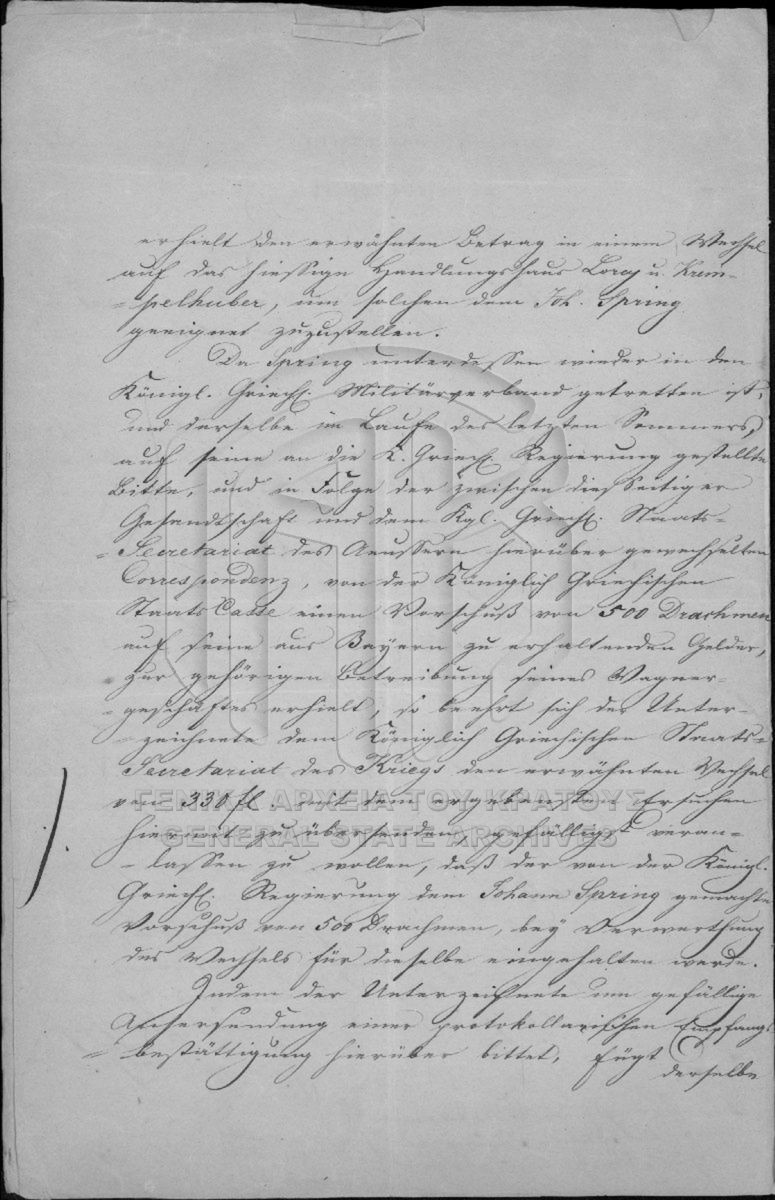 erhielt den erwähnten Betrag in einem Wechsel
auf das hiesige Handlungshaus u. Krem-
-pelhuber, um solchen dem Joh. Spring
geeignet zuzustellen.
Da Spring unterdessen wieder in den
Königl. Griech. Militärverband getretten ist,
und derselbe im Laufe des letzten Sommers,
auf seine an die K. Griech. Regierung gestellte
Bitte, und in Folge der zwischen diesseitiger
Gesandtschaft und dem Kgl. Griech. Staats-
-Secretariat des Aeussern hierüber gewechselten
Correspondenz, von der Königlich Griechischen
Staats Casse einen Vorschuß von 500 Drachmen
auf seine aus Bayern zu erhaltenden Gelder,
zur gehörigen Betreibung seines Wagner-
-geschäftes erhielt, so beehrt sich der Unter-
-zeichnete dem Königlich Griechischen Staats-
Secretariat des Kriegs den erwähnten Wechsel
von 330 fl. mit dem ergebensten Ersuchen
hiermit zu übersenden, gefälligst veran-
-lassen zu wollen, daß der von der Königl.
Griech. Regierung dem Johann Spring gemachte
Vorschuß von 500 Drachmen, bey Verwerthung
des Wechsels für dieselbe eingehalten werde.
Indem der Unterzeichnete um gefällige
Anhersendung einer protokollarischen Empfangs
-bestättigung hierüber bittet, fügt
derselbe
ΓΕΝΙΚΑ ΑΡΧΕΙΑ ΤΟΥ ΚΡΑΤΟΥΣ
GENERAL STATE ARCHIVES